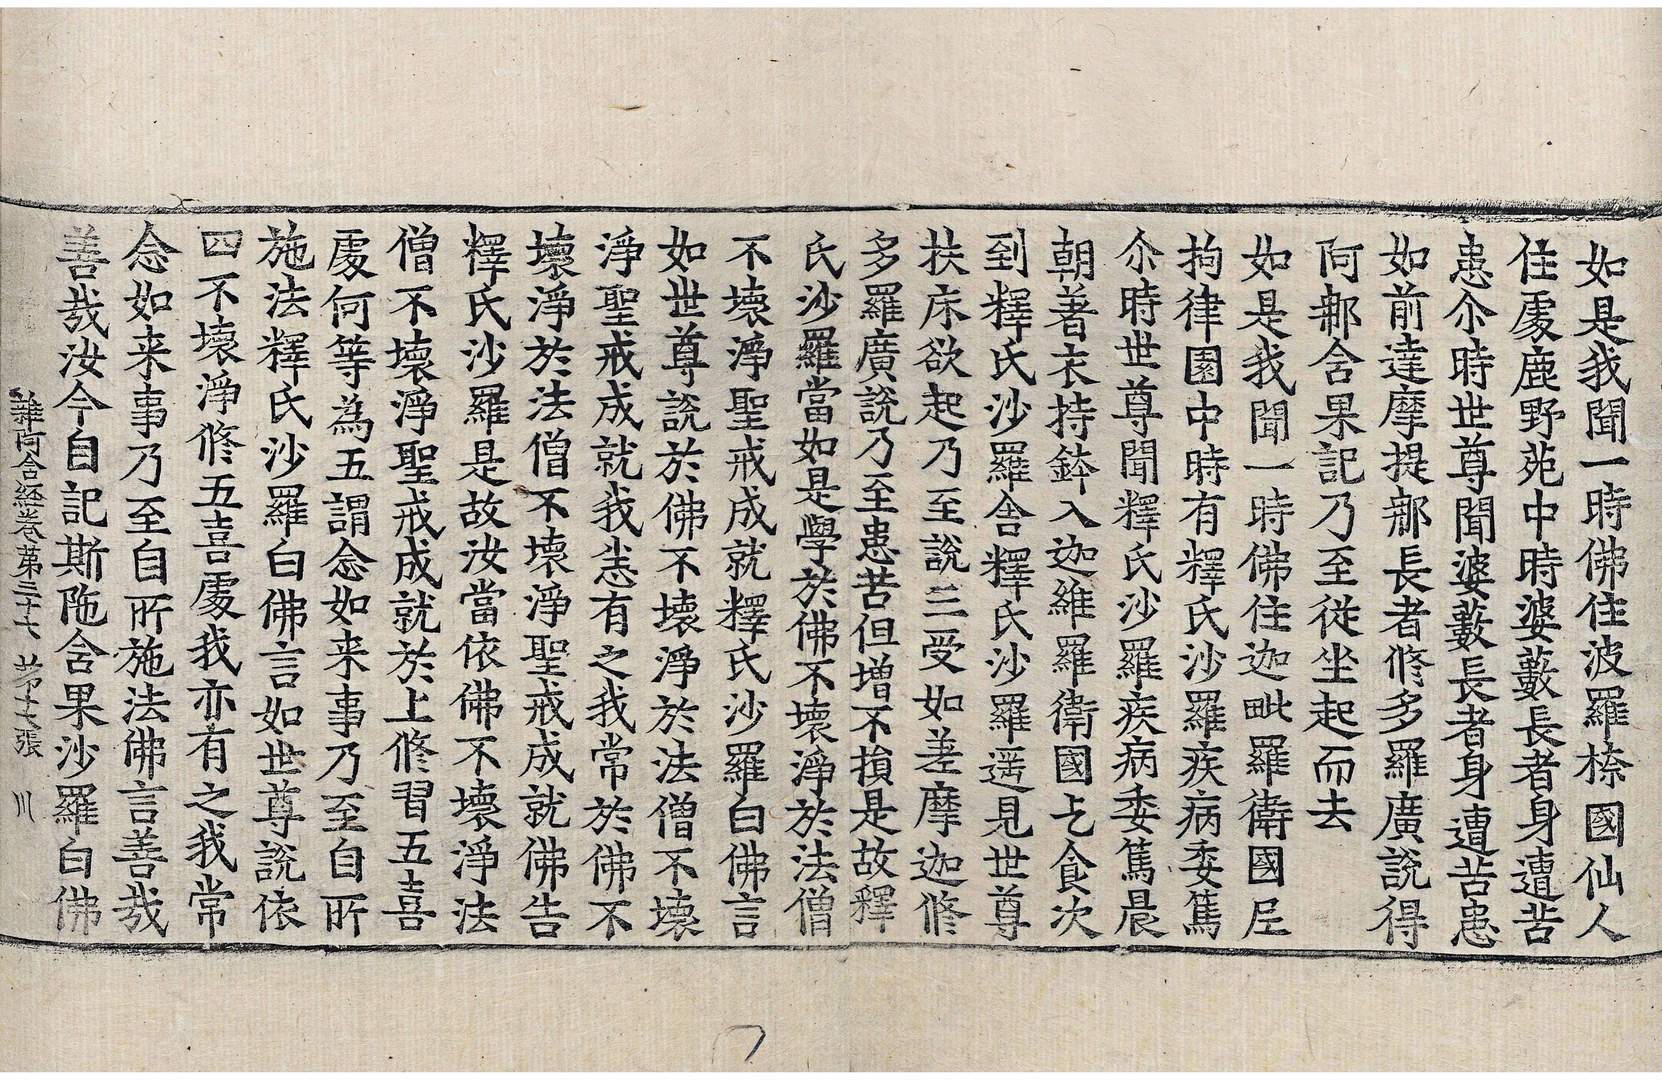 如是我聞一時佛住波羅㮈國仙人
住䖏鹿野苑中時婆藪長者身遭苦
患尒時世尊聞婆藪長者身遭苦患
如前達摩提那長者修多羅廣說得
阿那含果記乃至從坐起而去
如是我聞一時佛住迦毗羅衛國尼
拘律園中時有釋氏沙羅疾病委篤
尒時世尊聞釋氏沙羅疾病委篤晨
朝著衣持鉢入迦維羅衛國乞食次
到釋氏沙羅舍釋氏沙羅遥見世尊
扶床欲起乃至說三受如差摩迦修
多羅廣說乃至患苦但增不損是故釋
氏沙羅當如是學於佛不壞淨於法僧
不壞淨聖戒成就釋氏沙羅白佛言
如世尊說於佛不壞淨於法僧不壞
淨聖戒成就我悉有之我常於佛不
壞淨於法僧不壞淨聖戒成就佛告
釋氏沙羅是故汝當依佛不壞淨法
僧不壞淨聖戒成就於上修習五喜
䖏何等為五謂念如来事乃至自所
施法釋氏沙羅白佛言如世尊說依
四不壞淨修五喜䖏我亦有之我常
念如来事乃至自所施法佛言善㢤
善㢤汝今自記斯陁含果沙羅白佛
雜阿含経卷第三十七 苐十七張 川